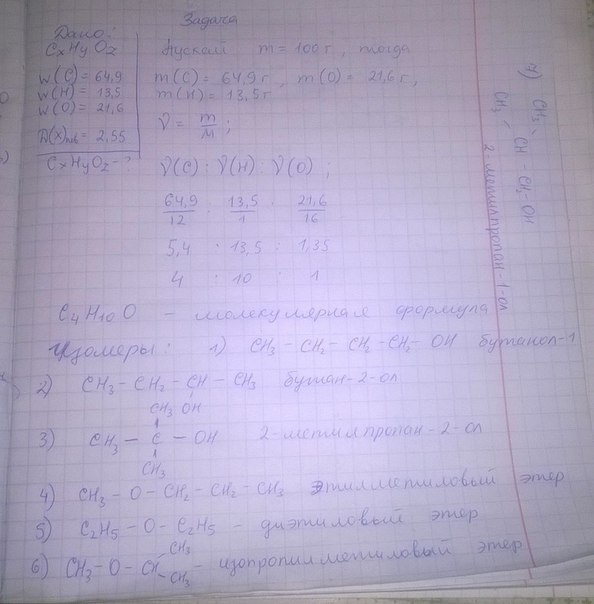 Задача
Дано:
CxHyOz
W(C) = 64,9
W(H) = 13,5
W(O) = 21,6
D(x)возд = 2,55
CxHyOz - ?
Пускай m = 100 г, тогда
m(C) = 64,9 г, m(O) = 21,6 г,
m(H) = 13,5 г
ν = m/M;
ν(C) : ν(H) : ν(O);
64,9/12 : 13,5/1 : 21,6/16
5,4 : 13,5 : 1,35
4 : 10 : 1
C4H10O – молекулярная формула
Изомеры: 1) CH3 – CH2 – CH2 – CH2 – OH бутанол-1
2) CH3 – CH2 – CH – CH3 бутан-2-ол
OH
CH3
3) CH3 – C – OH 2-метилпропан-2-ол
CH3
4) CH3 – O – CH2 – CH2 – CH3 этилметиловый этер
5) C2H5 – O – C2H5 – диэтиловый этер
CH3
6) CH3 – O – CH – изопропилметиловый этер
CH3
7) CH3
CH – CH2 – OH
CH3
2-метилпропан-1-ол